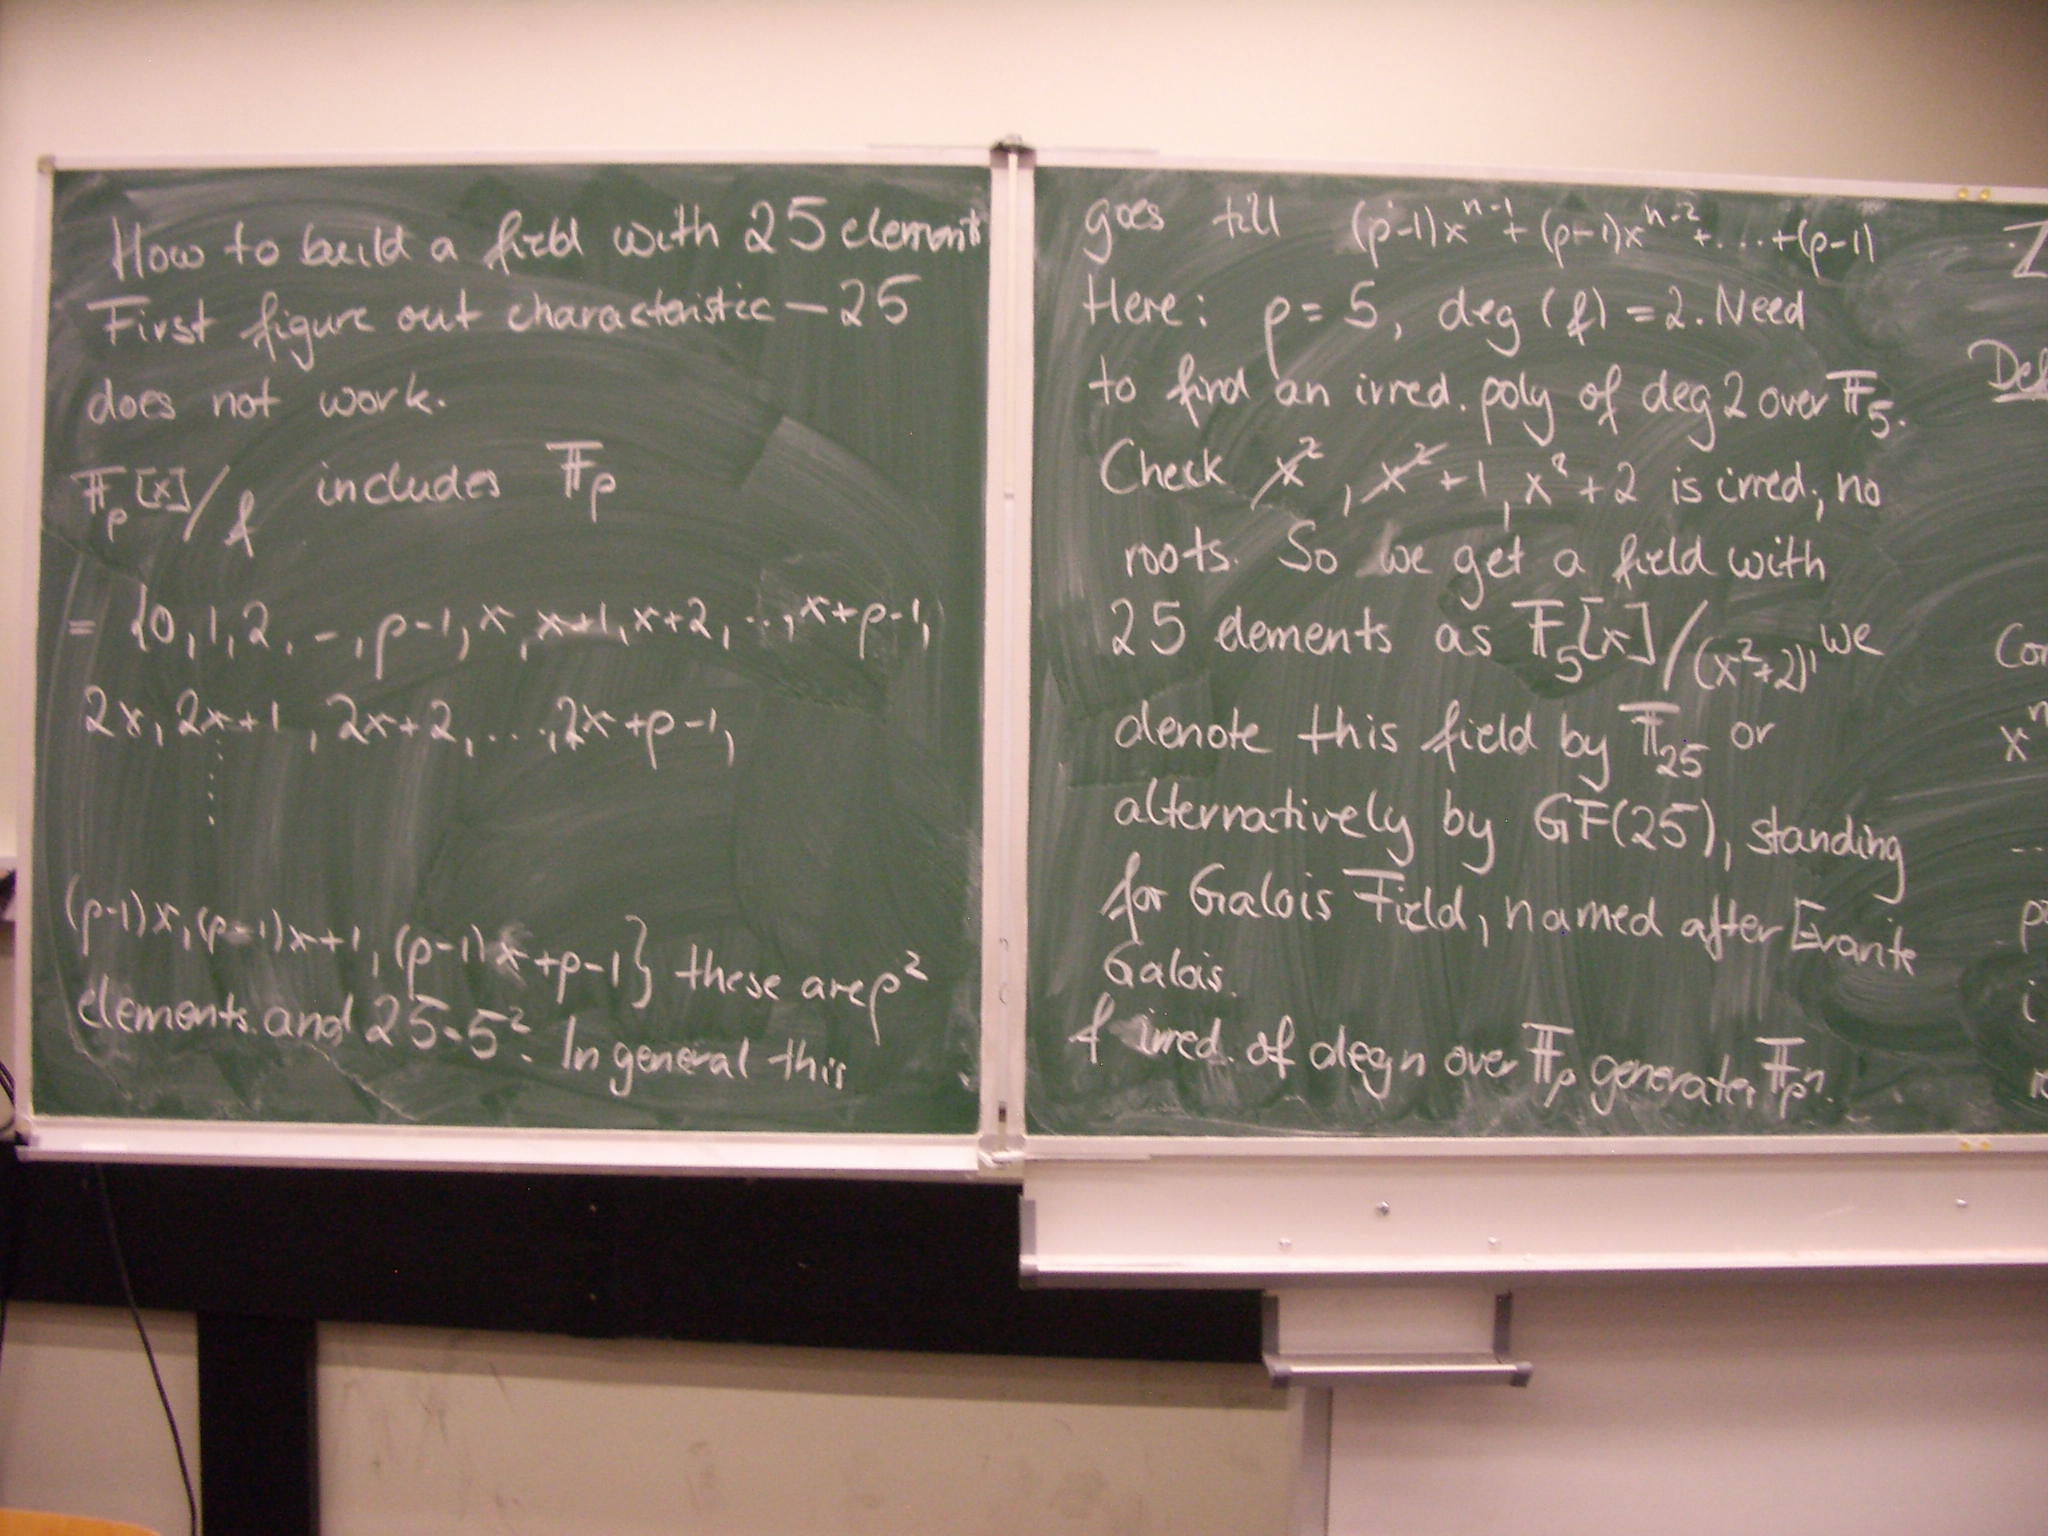 How to build a field with 25 element
First figure out characteristic - 25
does not work.
𝔽p[x]/f includes 𝔽p
= {0, 1, 2, .., p-1, x, x+1, x+2, ..., x+p-1,
2x, 2x+1, 2x+2, ..., 2x+p-1,
(p-1)x, (p-1)x+1, (p-1)x+p-1} these are p²
elements and 25=5². In general this
goes till (p-1)xⁿ⁻¹ + (p-1)xⁿ⁻² + ... + (p-1)
Here: p = 5, deg (f) = 2. Need
to find an irred. poly of deg 2 over 𝔽₅.
Check x², x²+1, x²+2 is irred, no
roots. So we get a field with
25 elements as 𝔽₅[x]/(x²+2), we
denote this field by 𝔽₂₅ or
alternatively by GF(25), standing
for Galois Field, named after Evariste
Galois.
f irred. of deg n over 𝔽p generates 𝔽pⁿ.
Z
Def
Con
xⁿ
...
i